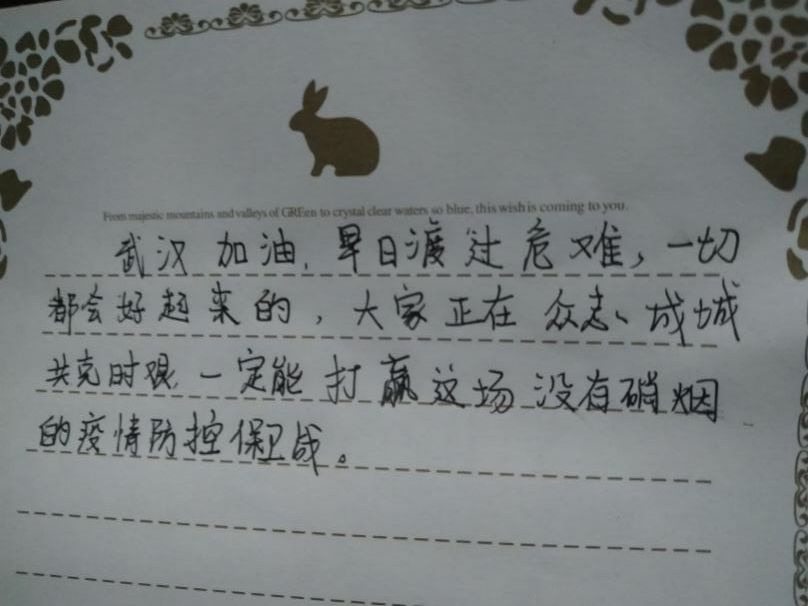 From majestic mountains and valleys of GREen to crystal clear waters so blue, this wish is coming to you.
武汉加油，早日渡过危难，一切
都会好起来的，大家正在众志成城
共克时艰，一定能打赢这场没有硝烟
的疫情防控保卫战。